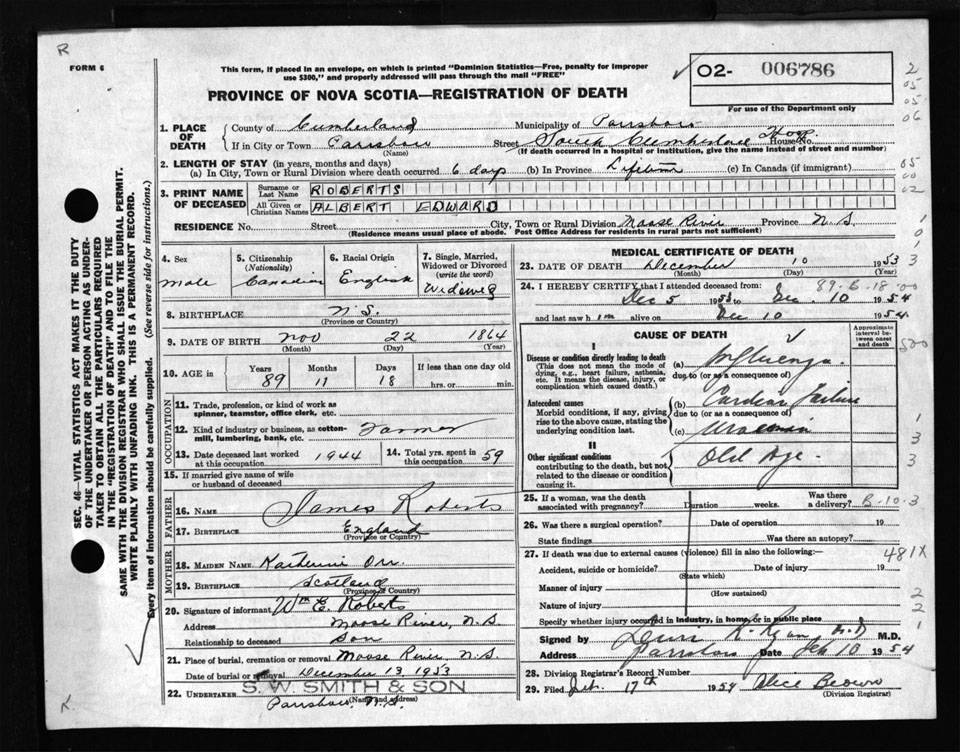 R
FORM 6
This form, if placed in an envelope, on which is printed "Dominion Statistics—Free, penalty for improper
use $300," and properly addressed will pass through the mail "FREE"
02- 006786
For use of the Department only
PROVINCE OF NOVA SCOTIA—REGISTRATION OF DEATH
2
05
05
06
1. PLACE OF DEATH
County of Cumberland Municipality of Parrsboro
If in City or Town Parrsboro Street South Cumberland Hosp. House No.
(Name) (If death occurred in a hospital or institution, give the name instead of street and number)
2. LENGTH OF STAY (in years, months and days)
(a) In City, Town or Rural Division where death occurred 6 days (b) In Province Lifetime (c) In Canada (if immigrant)
05
00
02
3. PRINT NAME OF DECEASED
Surname or Last Name ROBERTS
All Given or Christian Names ALBERT EDWARD
RESIDENCE No. Street City, Town or Rural Division Moose River Province N.S.
(Residence means usual place of abode. Post Office Address for residents in rural parts not sufficient)
4. Sex
male
5. Citizenship
(Nationality)
Canadian
6. Racial Origin
English
7. Single, Married,
Widowed or Divorced
(write the word)
8. BIRTHPLACE N.S.
(Province or Country)
9. DATE OF BIRTH Nov 22 1864
(Month) (Day) (Year)
10. AGE in Years Months Days If less than one day old
89 11 18 hrs. or min.
OCCUPATION
11. Trade, profession, or kind of work as
spinner, teamster, office clerk, etc.
12. Kind of industry or business, as cotton-
mill, lumbering, bank, etc. Farmer
13. Date deceased last worked
at this occupation 1944
14. Total yrs. spent in
this occupation 59
15. If married give name of wife
or husband of deceased
FATHER
16. NAME James Roberts
17. BIRTHPLACE England
(Province or Country)
MOTHER
18. MAIDEN NAME Katherine Orr.
19. BIRTHPLACE Scotland
(Province or Country)
20. Signature of informant Wm E. Roberts
Address Moose River, N.S
Relationship to deceased Son
21. Place of burial, cremation or removal Moose River, N.S
Date of burial or removal December 13, 1953
22. UNDERTAKER S. W. SMITH & SON
(Name and address)
Parrsboro, N.S.
MEDICAL CERTIFICATE OF DEATH
23. DATE OF DEATH December 10 1953
(Month) (Day)
24. I HEREBY CERTIFY that I attended deceased from: 89-6-18 00
Dec 5 1953 to Dec. 10 1954
and last saw h im alive on Dec 10 1954
CAUSE OF DEATH
Approximate
interval
between onset
and death
I
Disease or condition directly leading to death
(This does not mean the mode of
dying, e.g., heart failure, asthenia,
etc. It means the disease, injury, or
complication which caused death.
(a) Influenza
due to (or as a consequence of)
500
Antecedent causes
Morbid conditions, if any, giving
rise to the above cause, stating the
underlying condition last.
(b) Cardiac Failure
due to (or as a consequence of)
(c)
II
Other significant conditions
contributing to the death, but not
related to the disease or condition
causing it.
Old Age.
25. If a woman, was the death
associated with pregnancy? Duration weeks. Was there
a delivery? B-10-3
26. Was there a surgical operation? Date of operation 19
State findings Was there an autopsy?
27. If death was due to external causes (violence) fill in also the following:—
481X
Accident, suicide or homicide? Date of injury 19
(State which)
Manner of injury
(How sustained)
Nature of injury
Specify whether injury occurred in industry, in home, or in public place
Signed by K. Ryan M.D M.D.
Address Parrsboro Date Feb 10 1954
28. Division Registrar's Record Number
29. Filed Feb. 17th 1954 Alice Brown
(Division Registrar)
SEC. 46—VITAL STATISTICS ACT MAKES IT THE DUTY
OF THE UNDERTAKER OR PERSON ACTING AS UNDER-
TAKER TO OBTAIN ALL THE PARTICULARS REQUIRED
IN THE "REGISTRATION OF DEATH" AND TO FILE THE
SAME WITH THE DIVISION REGISTRAR WHO SHALL ISSUE THE BURIAL PERMIT.
WRITE PLAINLY WITH UNFADING INK. THIS IS A PERMANENT RECORD.
Every item of information should be carefully supplied. (See reverse side for instructions.)